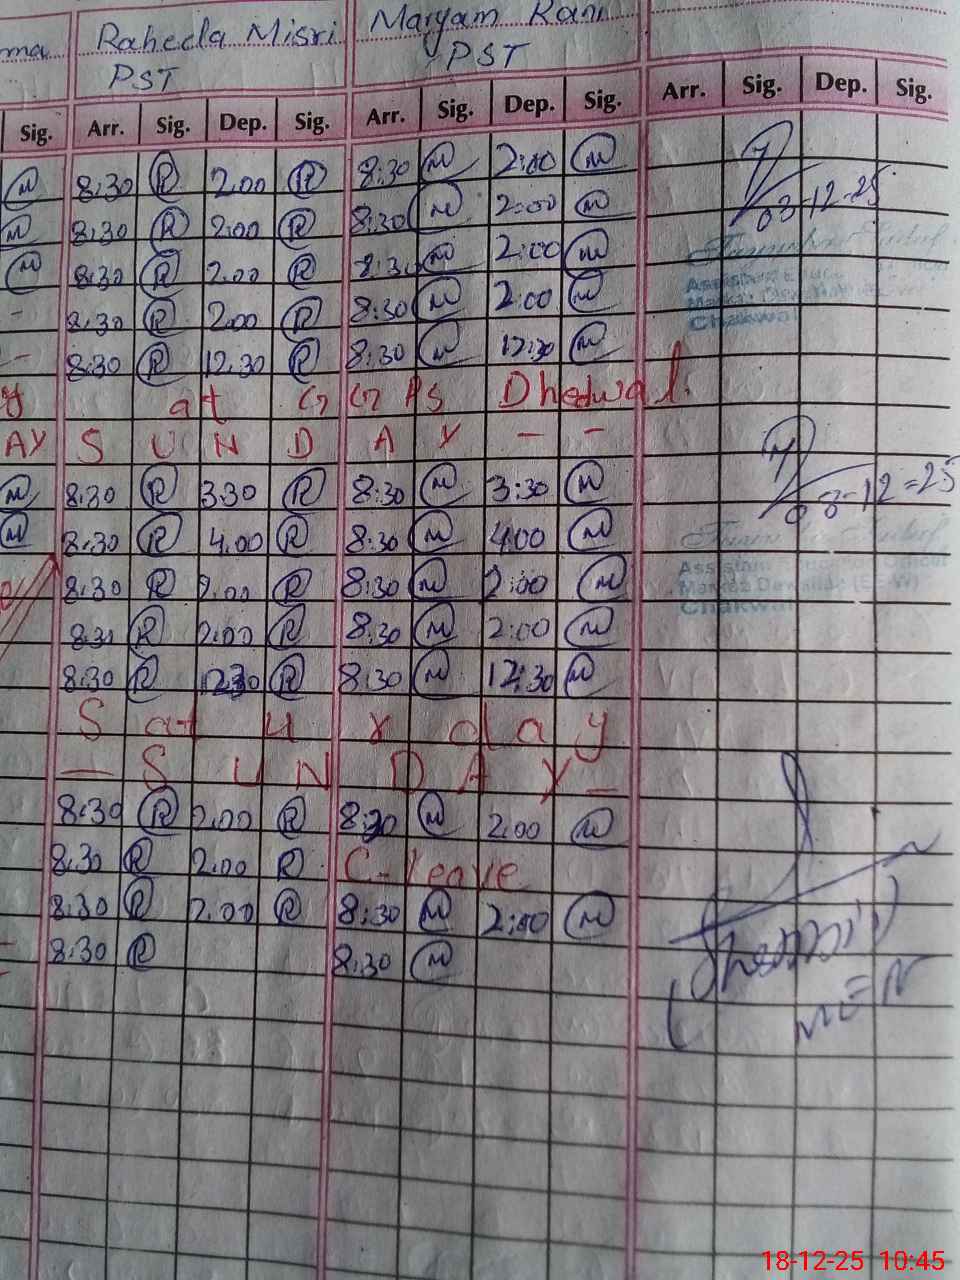 ma Raheela Misri Maryam Rani
PST PST
Sig. Arr. Sig. Dep. Sig. Arr. Sig. Dep. Sig. Arr. Sig. Dep. Sig.
M 8:30 R 2.00 R 8:30 M 2:00 M
M 8:30 R 2:00 R 8:30 M 2:00 M 03-12-25
M 8:30 R 2.00 R 8:30 M 2:00 M
- 8:30 R 2.00 R 8:30 M 2:00 M Chakwal
- 8:30 R 12.30 R 8:30 M 12:30 M
y at GGPS Dhedwal.
AY S U N D A Y - -
M 8.30 R 3.30 R 8:30 M 3:30 M 08-12=25
M 8:30 R 4.00 R 8:30 M 4:00 M
8:30 R 2.00 R 8:30 M 2:00 M Assistant Education Officer
Markaz (EE-W)
8:30 R 2:00 R 8:30 M 2:00 M Chakwal
8:30 R 1230 R 8:30 M 12:30 M
S at u r d a y
- S U N D A Y -
8:30 R 2.00 R 8:30 M 2:00 M
8.30 R 2.00 R C. leave
8:30 R 2.00 R 8:30 M 2:00 M
8:30 R 8:30 M
18-12-25 10:45